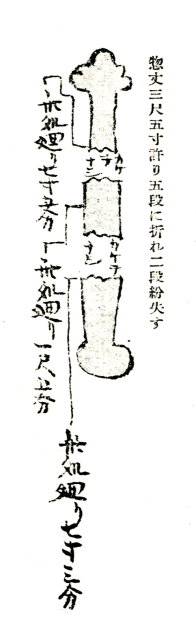 惣丈三尺五寸許り五段に折れ二段紛失す
カケテナシ
カケテナシ
此処廻り七寸五分
此処廻り一尺五分
此処廻り七寸三分